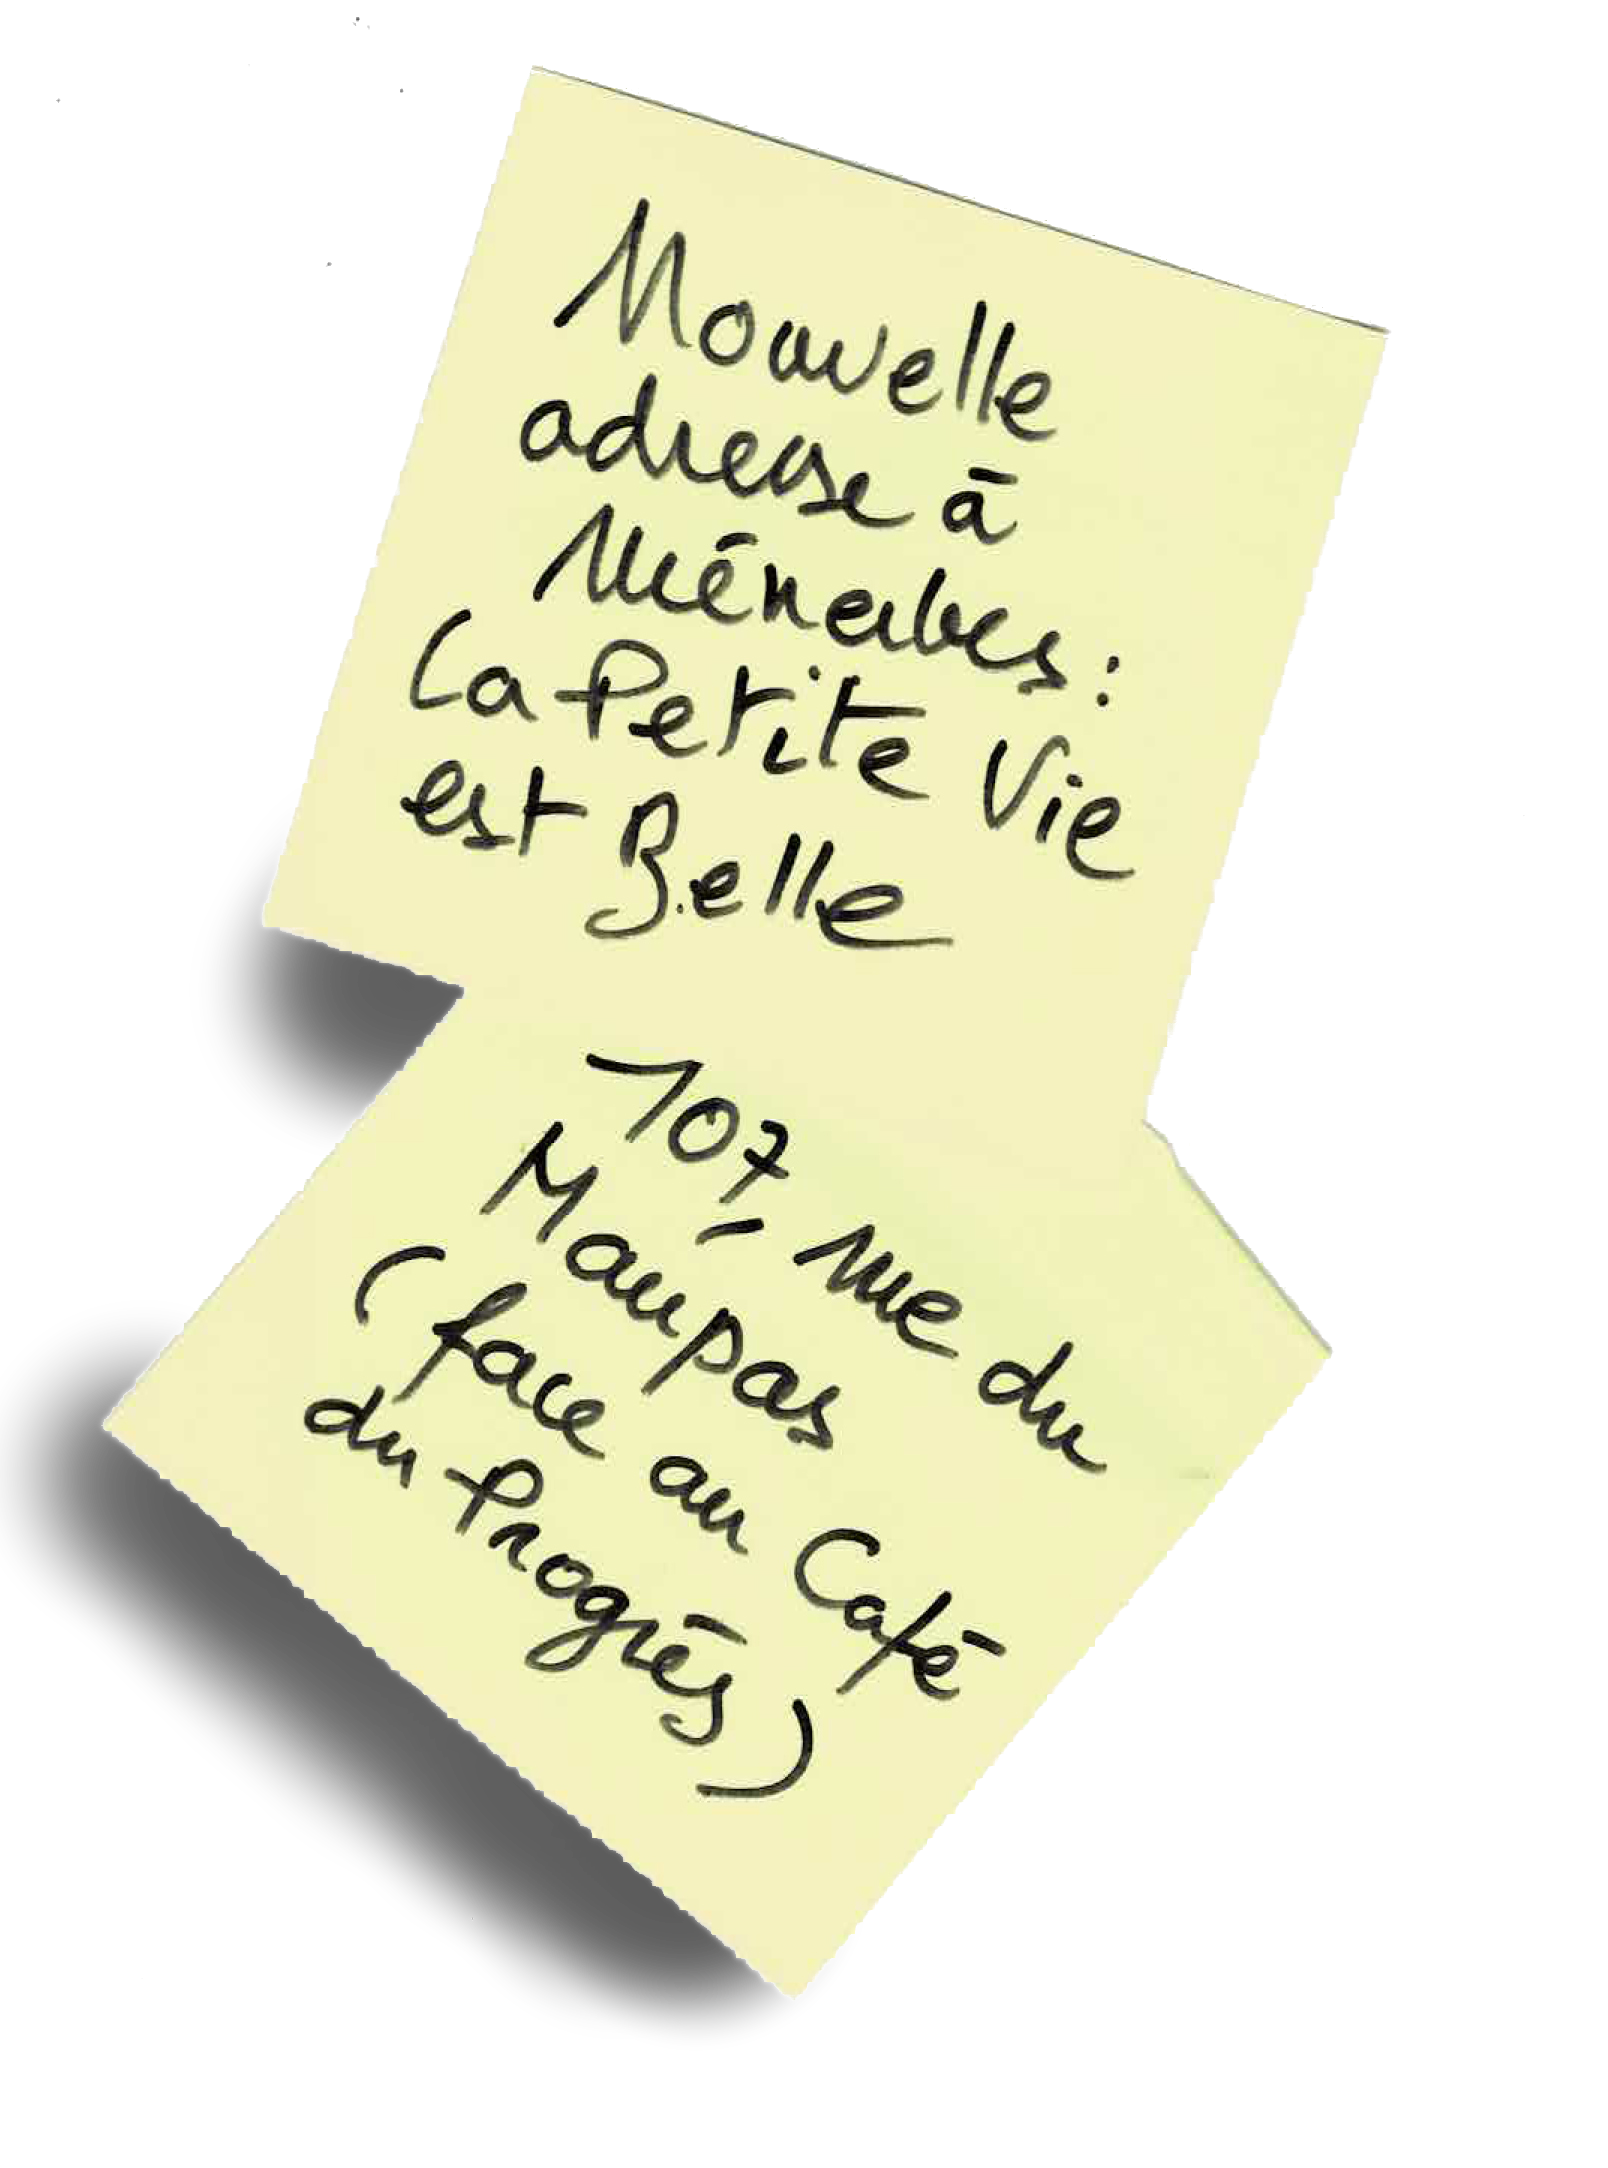 Nouvelle
adresse à
Ménerbes :
La Petite Vie
est Belle
107, rue du
Maupas
(face au Café
du Progrès)